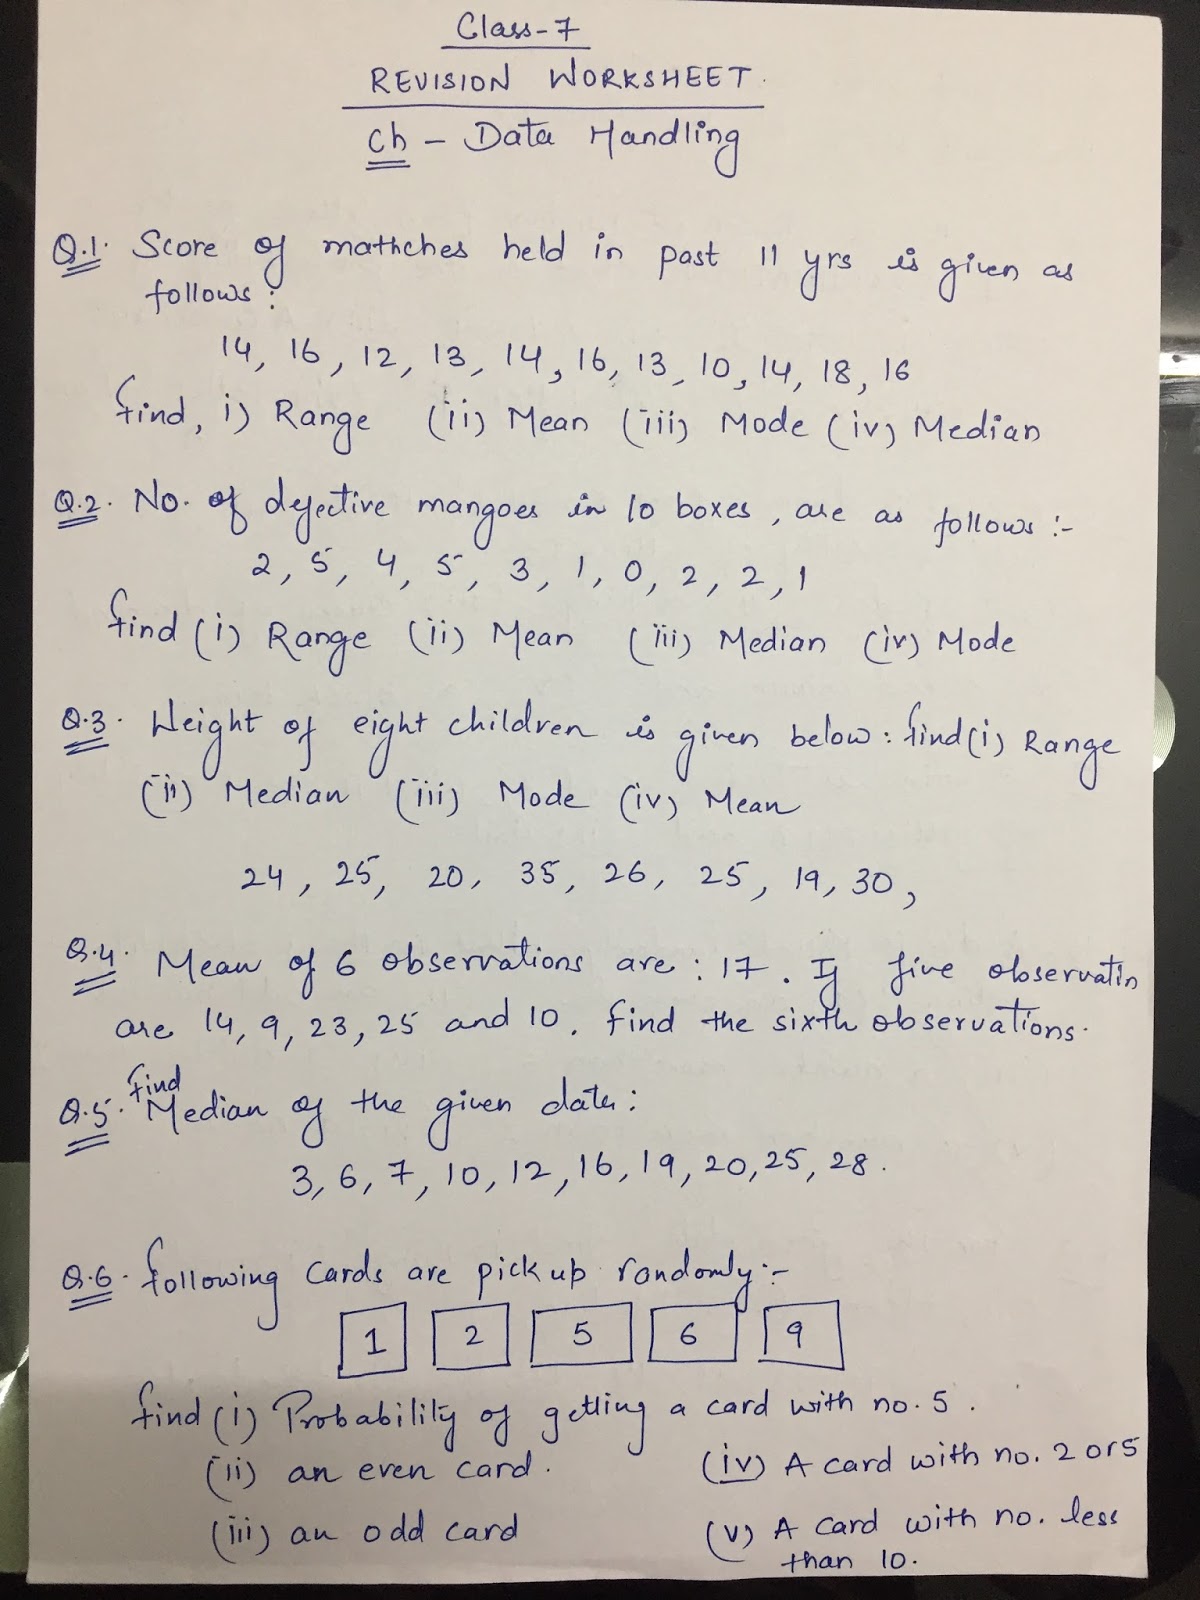 Class-7
REVISION WORKSHEET.
Ch - Data Handling
Q.1. Score of mathches held in past 11 yrs is given as
follows:
14, 16, 12, 13, 14, 16, 13, 10, 14, 18, 16
find, i) Range (ii) Mean (iii) Mode (iv) Median
Q.2. No. of defective mangoes in 10 boxes, are as follows :-
2, 5, 4, 5, 3, 1, 0, 2, 2, 1
find (i) Range (ii) Mean (iii) Median (iv) Mode
Q.3. Weight of eight children is given below: find (i) Range
(ii) Median (iii) Mode (iv) Mean
24, 25, 20, 35, 26, 25, 19, 30,
Q.4. Mean of 6 observations are : 17. If five observatin
are 14, 9, 23, 25 and 10. find the sixth observations.
Q.5. find Median of the given data:
3, 6, 7, 10, 12, 16, 19, 20, 25, 28.
Q.6. following cards are pick up randomly:-
1 2 5 6 9
find (i) Probability of getting a card with no. 5.
(ii) an even card. (iv) A card with no. 2 or 5
(iii) an odd card (v) A card with no. less
than 10.